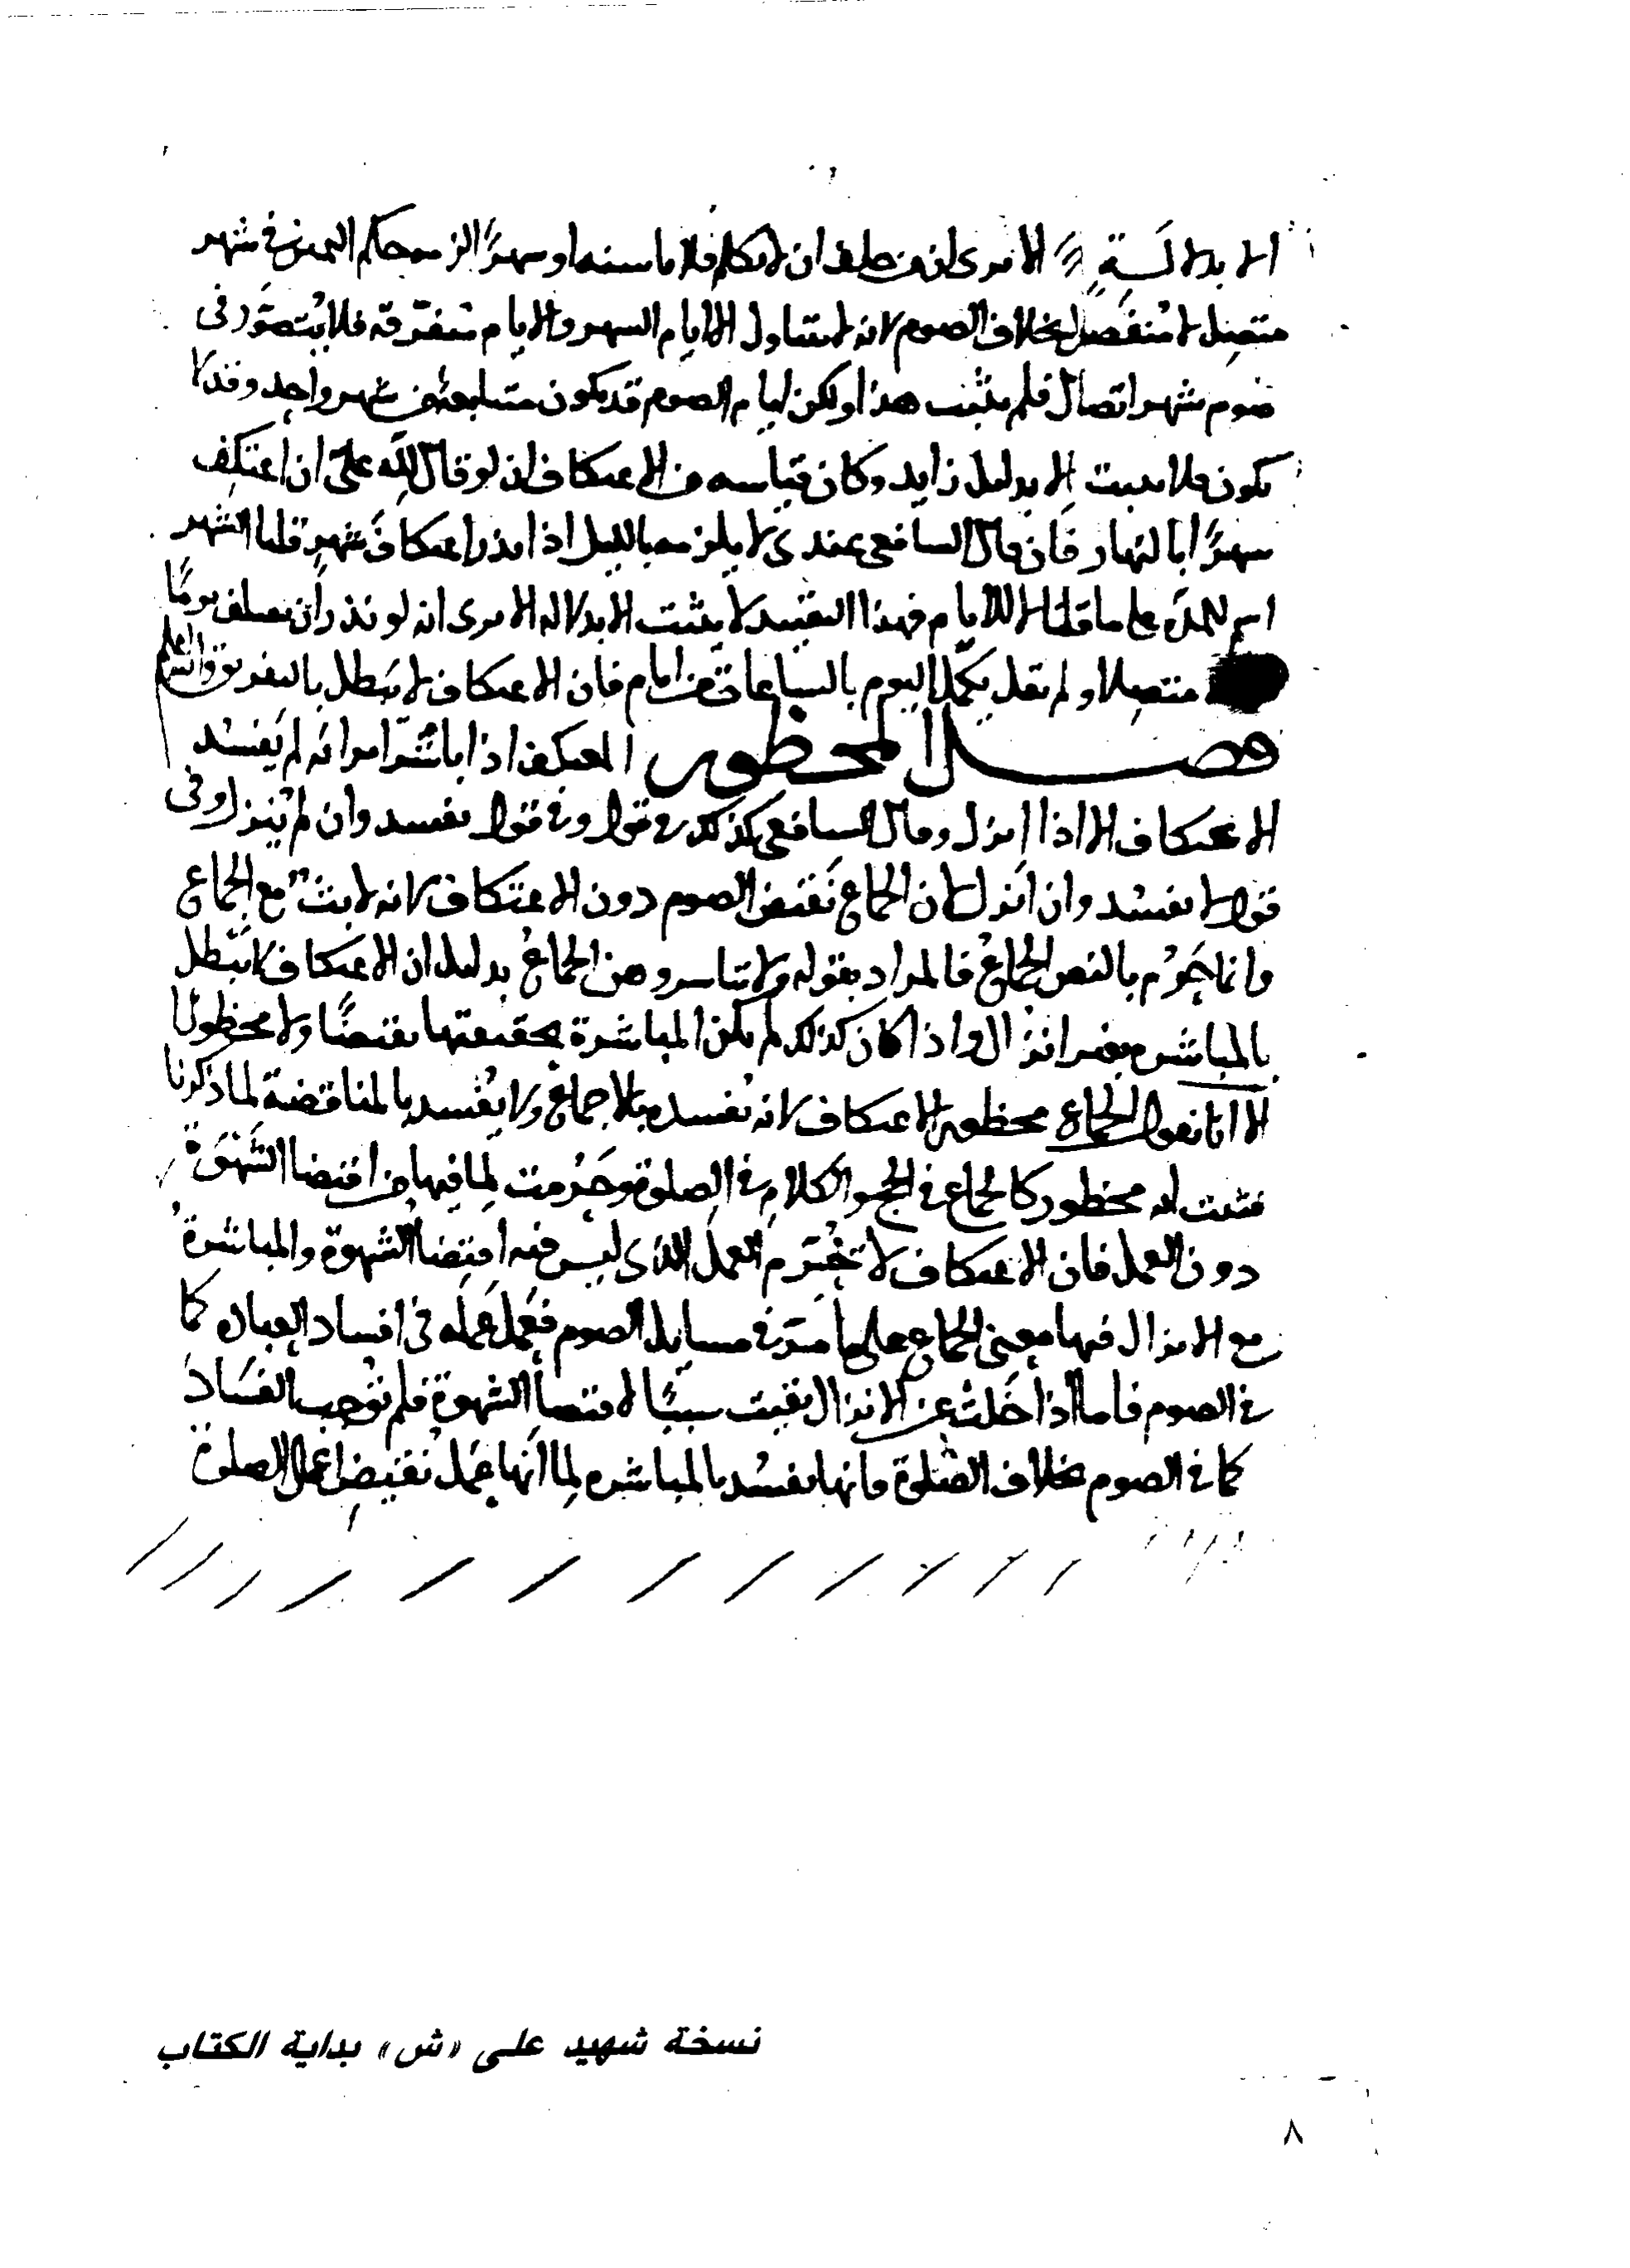 الا بدلالة الا ترى ان من حلف ان لا يكلم فلانا سنة او شهرًا لزمه حكم اليمين في شهر
متصل لا منفصل بخلاف الصوم لانه لا يتناول الا الايام الشهر والايام متفرقه فلا يتصور في
صوم شهر اتصال فلم يثبت هذا ولكن ايام الصوم قد يكون متتابعة في شهر واحد وقد لا
يكون فلا يثبت الا بدليل زايد وكان قياسه من الاعتكاف ان لو قال لله علىّ ان اعتكف
شهرًا بالنهار فان قال الشافعي عندي لا يلزمه بالليل اذا نذر اعتكاف شهر قلنا الشهر
اسم لجملة على ما قلنا لا للايام فهذا التقييد لا يثبت الا بدلاله الا ترى انه لو نذر ان يعتكف يومًا
متصلا ولم نقل يكمل اليوم بالساعات من ايام فان الاعتكاف لا يبطل بالتفريق والله اعلم
فصل المحظور المعتكف اذا باشر امراته لم يفسد
الاعتكاف الا اذا انزل وقال الشافعي كذلك في قول وفي قول يفسد وان لم ينزل وفي
قول لا يفسد وان انزل لان الجماع نقيض الصوم دون الاعتكاف لانه لا يثبت مع الجماع
وانما يحرم بالنص الجماع فالمراد بقوله ولا تباشروهن الجماع بدليل ان الاعتكاف لا يبطل
بالمباشره بغير انزال واذا كان كذلك لم يكن المباشرة بحقيقتها نقيضًا ولا محظورًا
الا انا نقول الجماع محظور الاعتكاف لانه يفسده بالاجماع ولا يفسد بالمناقضة لما ذكرنا
فثبت انه محظور كالجماع في الحج والكلام في الصلوة وحرمت لما فيها من اقتضا الشهوة
دون العمل فان الاعتكاف لا يحترم العمل الذي ليس فيه اقتضا الشهوة والمباشرة
مع الانزال فيها معنى الجماع على ما مر في مسايل الصوم فعمل عمله في افساد العبادة كما
في الصوم فاما اذا خلت عن الانزال بقيت سببًا لاقتضا الشهوة فلم توجب الفساد
كما في الصوم بخلاف الصلوة فانها تفسد بالمباشره لما انها عمل نقيض اعمال الصلوة
نسخة شهيد على «ش» بداية الكتاب
٨